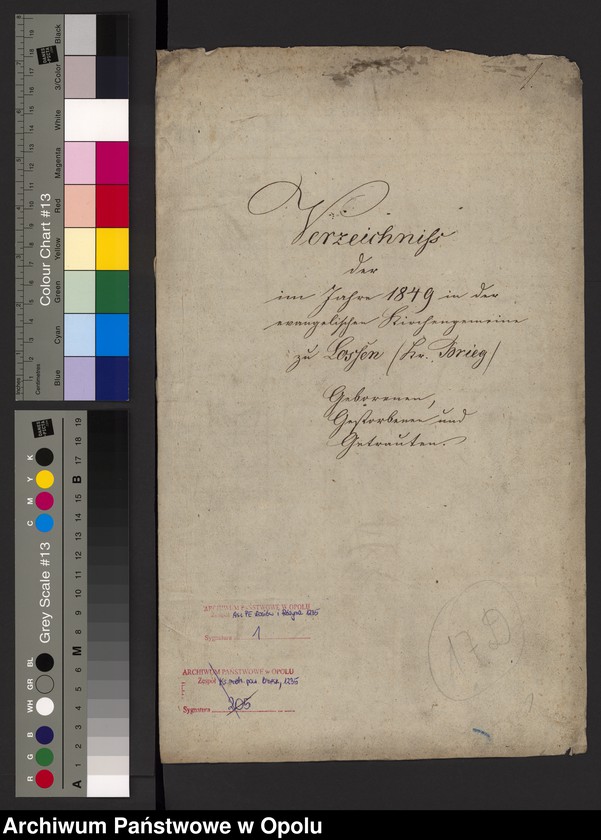 Verzeichniss
der
im Jahre 1849 in der
evangelischen Kirchengemeine
zu Lossen (Kr. Brieg)
Geborenen,
Gestorbenen und
Getrauten.
ARCHIWUM PAŃSTWOWE W OPOLU
1235
Sygnatura 1
ARCHIWUM PAŃSTWOWE w OPOLU
Zespół 1235
Sygnatura 205
179
Colour Chart #13
Blue Cyan Green Yellow Red Magenta White 3/Color Black
Inches
Centimetres
Grey Scale #13
R G B WH GR BL C M Y K
A 1 2 3 4 5 6 M 8 9 10 11 12 13 14 15 B 17 18 19
Archiwum Państwowe w Opolu